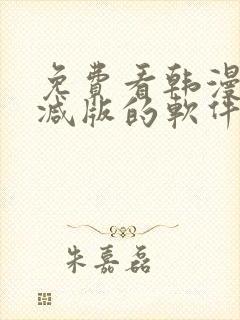 免費看韩漫
减版的軟件
朱嘉磊